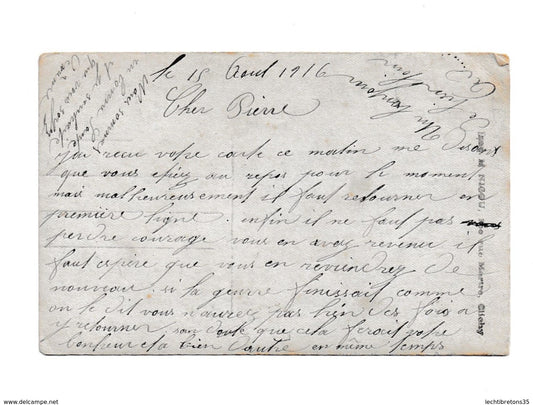 le 15 Aout 1916
Cher Pierre
j'ai recu votre carte ce matin me disant
que vous etiez au repos pour le moment
mais malheureusement il faut retourner en
première ligne. enfin il ne faut pas
perdre courage vous en avez revenu il
faut espére que vous en reviendrez de
nouveau. si la guerre finissait comme
on le dit vous n'aurez pas bien des fois a
y retourner, sans doute que cela ferait votre
bonheur et a bien d'autre en même temps
Nous sommes
en bonne santé
que vous soyez
NICOL rue Martre Clichy
www.delcampe.net
lechtibretons35